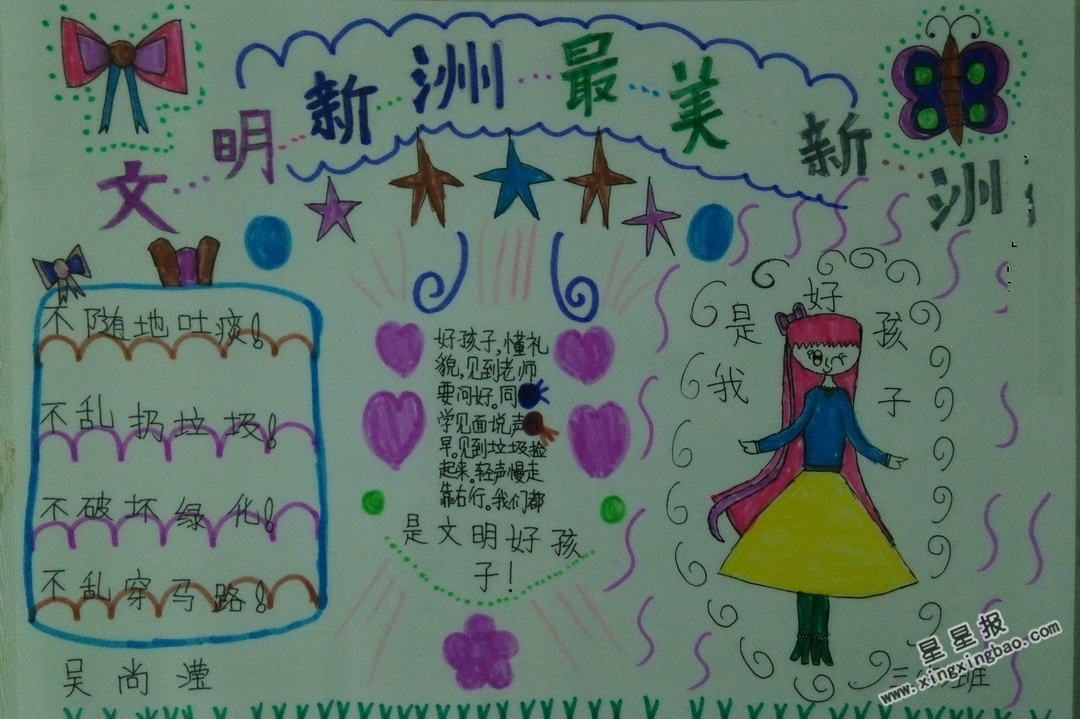 文明新洲最美新洲
不随地吐痰!
不乱扔垃圾!
不破坏绿化!
不乱穿马路!
好孩子,懂礼
貌,见到老师
要问好。同
学见面说声
早。见到垃圾捡
起来。轻声慢走
靠右行。我们都
是文明好孩
子!
我是好孩子
吴尚滢
班
星星报
www.xingxingbao.com